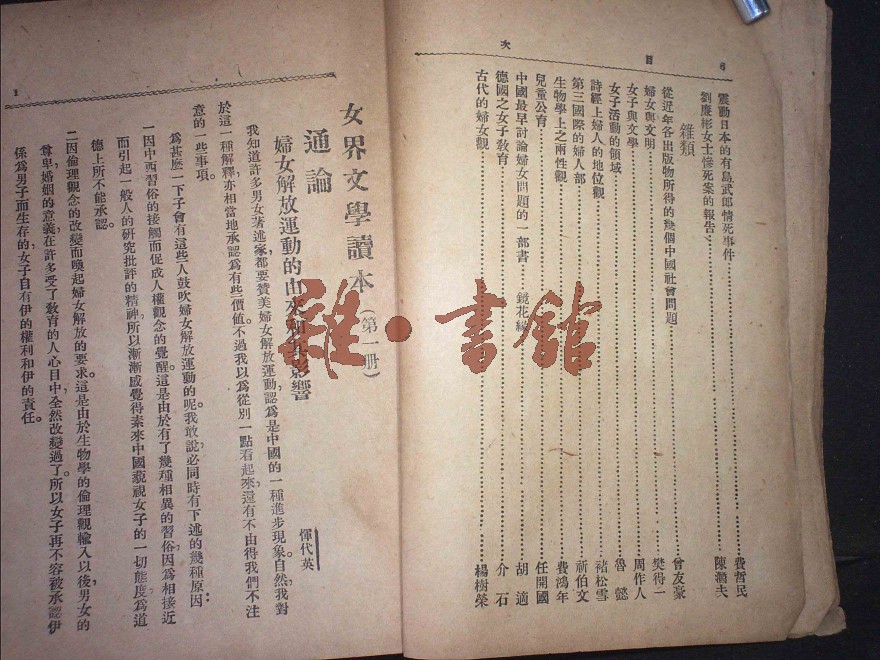 目次
6
震動日本的有島武郎情死事件……費哲民
劉廉彬女士慘死案的報告……陳潤夫
雜類
從近年各出版物所得的幾個中國社會問題……曾友豪
婦女與文明……樊得一
女子與文學……周作人
女子活動的領域……魯懿
詩經上婦人的地位觀……褚松雪
第三國際的婦人部……祈伯文
生物學上之兩性觀……費鴻年
兒童公育……任開國
中國最早討論婦女問題的一部書——鏡花緣……胡適
德國之女子敎育……介石
古代的婦女觀……楊樹榮
女界文學讀本(第一册)
通論
婦女解放運動的由來和其影響
惲代英
我知道許多男女著述家,都要贊美婦女解放運動,認爲是中國的一種進步現象。自然,我對
於這一種解釋,亦相當地承認爲有些價値。不過我以爲從別一點看起來,還有不由得我們不注
意的一些事項。
爲甚麼一下子會有這些人鼓吹婦女解放運動的呢。我敢說,必同時有下述的幾種原因:
一因中西習俗的接觸而促成人權觀念的覺醒。這是由於有了幾種相異的習俗,因爲相接近
而引起一般人的研究批評的精神,所以漸漸感覺得素來中國藐視女子的一切態度,爲道
德上所不能承認。
二因倫理觀念的改變而喚起婦女解放的要求。這是由於生物學的倫理觀輸入以後,男女的
尊卑,婚姻的意義,在許多受了敎育的人心目中,全然改變過了。所以女子再不容被承認伊
係爲男子而生存的,女子自有伊的權利和伊的責任。
1
雜·書館